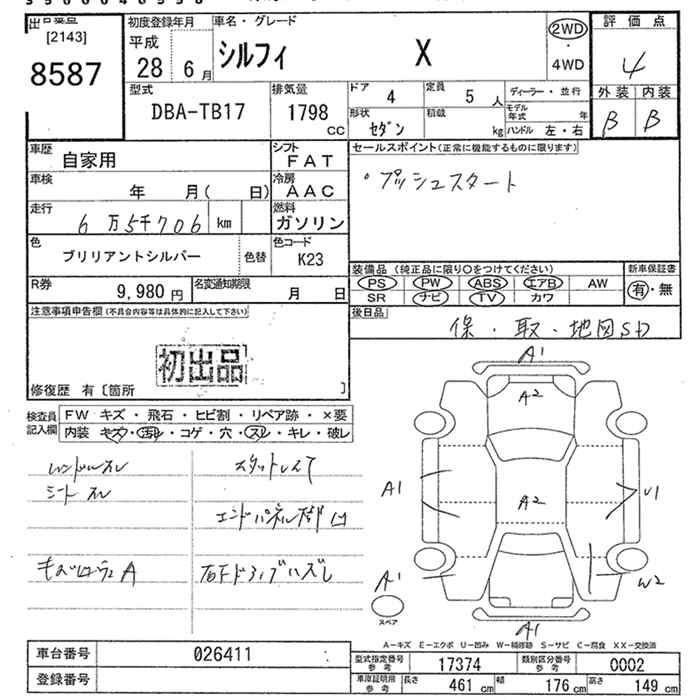 出品番号 初度登録年月 車名・グレード 評価点
[2143] 平成 シルフィ X 2WD
8587 28 6月 ・ 4
4WD
型式 排気量 ドア 4 定員 5人 ディーラー・並行 外装 内装
DBA-TB17 1798 CC 形状 セダン 積載 kg モデル年式 年 B B
ハンドル 左・右
車歴 自家用 シフト FAT セールスポイント(正常に機能するものに限ります)
車検 年 月( 日) 冷房 AAC ・プッシュスタート
走行 6万5千706 km 燃料 ガソリン
色 ブリリアントシルバー 色替 色コード K23
装備品 (純正品に限り○をつけてください) 新車保証書
R券 9,980円 名変通知期限 月 日 PS PW ABS エアB AW 有・無
SR ナビ TV カワ
注意事項申告欄(不具合内容等は具体的に記入して下さい) 後日品 保・取・地図SD
初出品
修復歴 有〔箇所 〕
検査員記入欄 FW キズ・飛石・ヒビ割・リペア跡・×要
内装 キズ・汚れ・コゲ・穴・スレ・キレ・破レ
A1
A2
ハンドルスレ スタットレスT
シートスレ
A1 A2 U1
エンドパネル
A 右Fドア ハズレ
A1 W2
スペア
A1
A-キズ E-エクボ U-凹み W-補修跡 S-サビ C-腐食 XX-交換済
車台番号 026411 型式指定番号 参考 17374 類別区分番号 参考 0002
登録番号 車庫証明用 参考 長さ 461 cm 幅 176 cm 高さ 149 cm